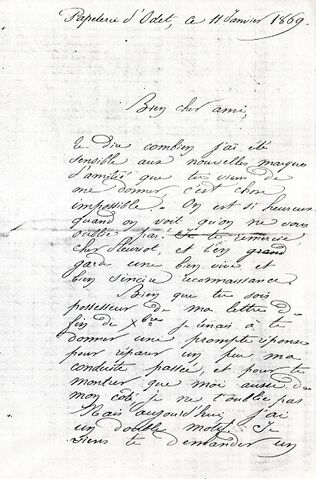 Papeterie d'Odet, ce 11 Janvier 1869.
Bien cher ami,
Te dire combien j'ai été
sensible aux nouvelles marques
d'amitié que tu viens de
me donner, c'est chose
impossible. On est si heureux
quand on voit qu'on ne vous
oublie pas! Je te remercie
cher Fleuriot, et t'en
garde une bien vive et
bien sincère reconnaissance.
Bien que tu sois
possesseur de ma lettre de
fin de Xbre je tenais à te
donner une prompte réponse
pour réparer un peu ma
conduite passée, et pour te
montrer que moi aussi de
mon côté je ne t'oublie pas
Mais aujourd'hui j'ai
un double motif. Je
viens te demander un